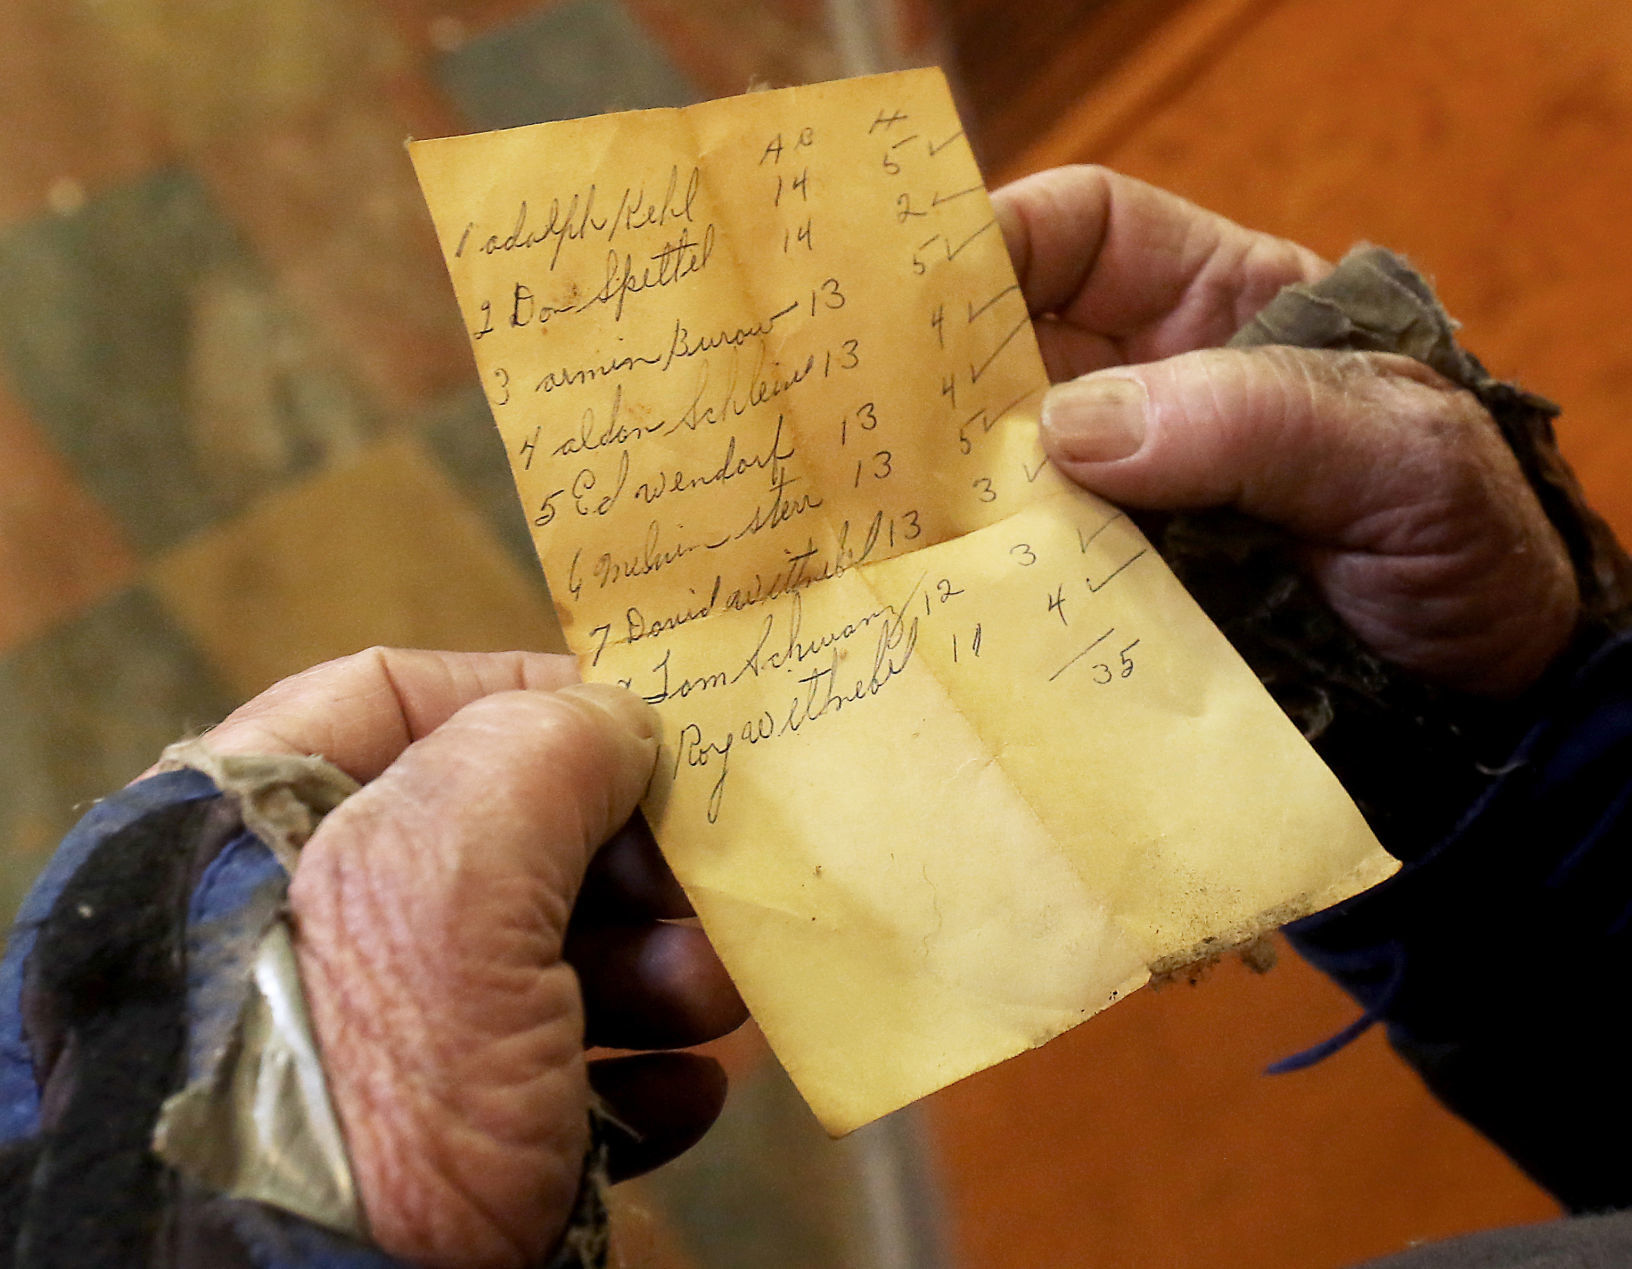 AB H
1 adolph Kehl 14 5 ✓
2 Don Spettel 14 2 ✓
3 armin Burow 13 5 ✓
4 aldon 13 4 ✓
5 Ed wendorf 13 4 ✓
6 Melvin sterr 13 5 ✓
7 David wittnebel 13 3 ✓
8 Tom Schwanz 12 3 ✓
Roy wittnebel 11 4 ✓
35